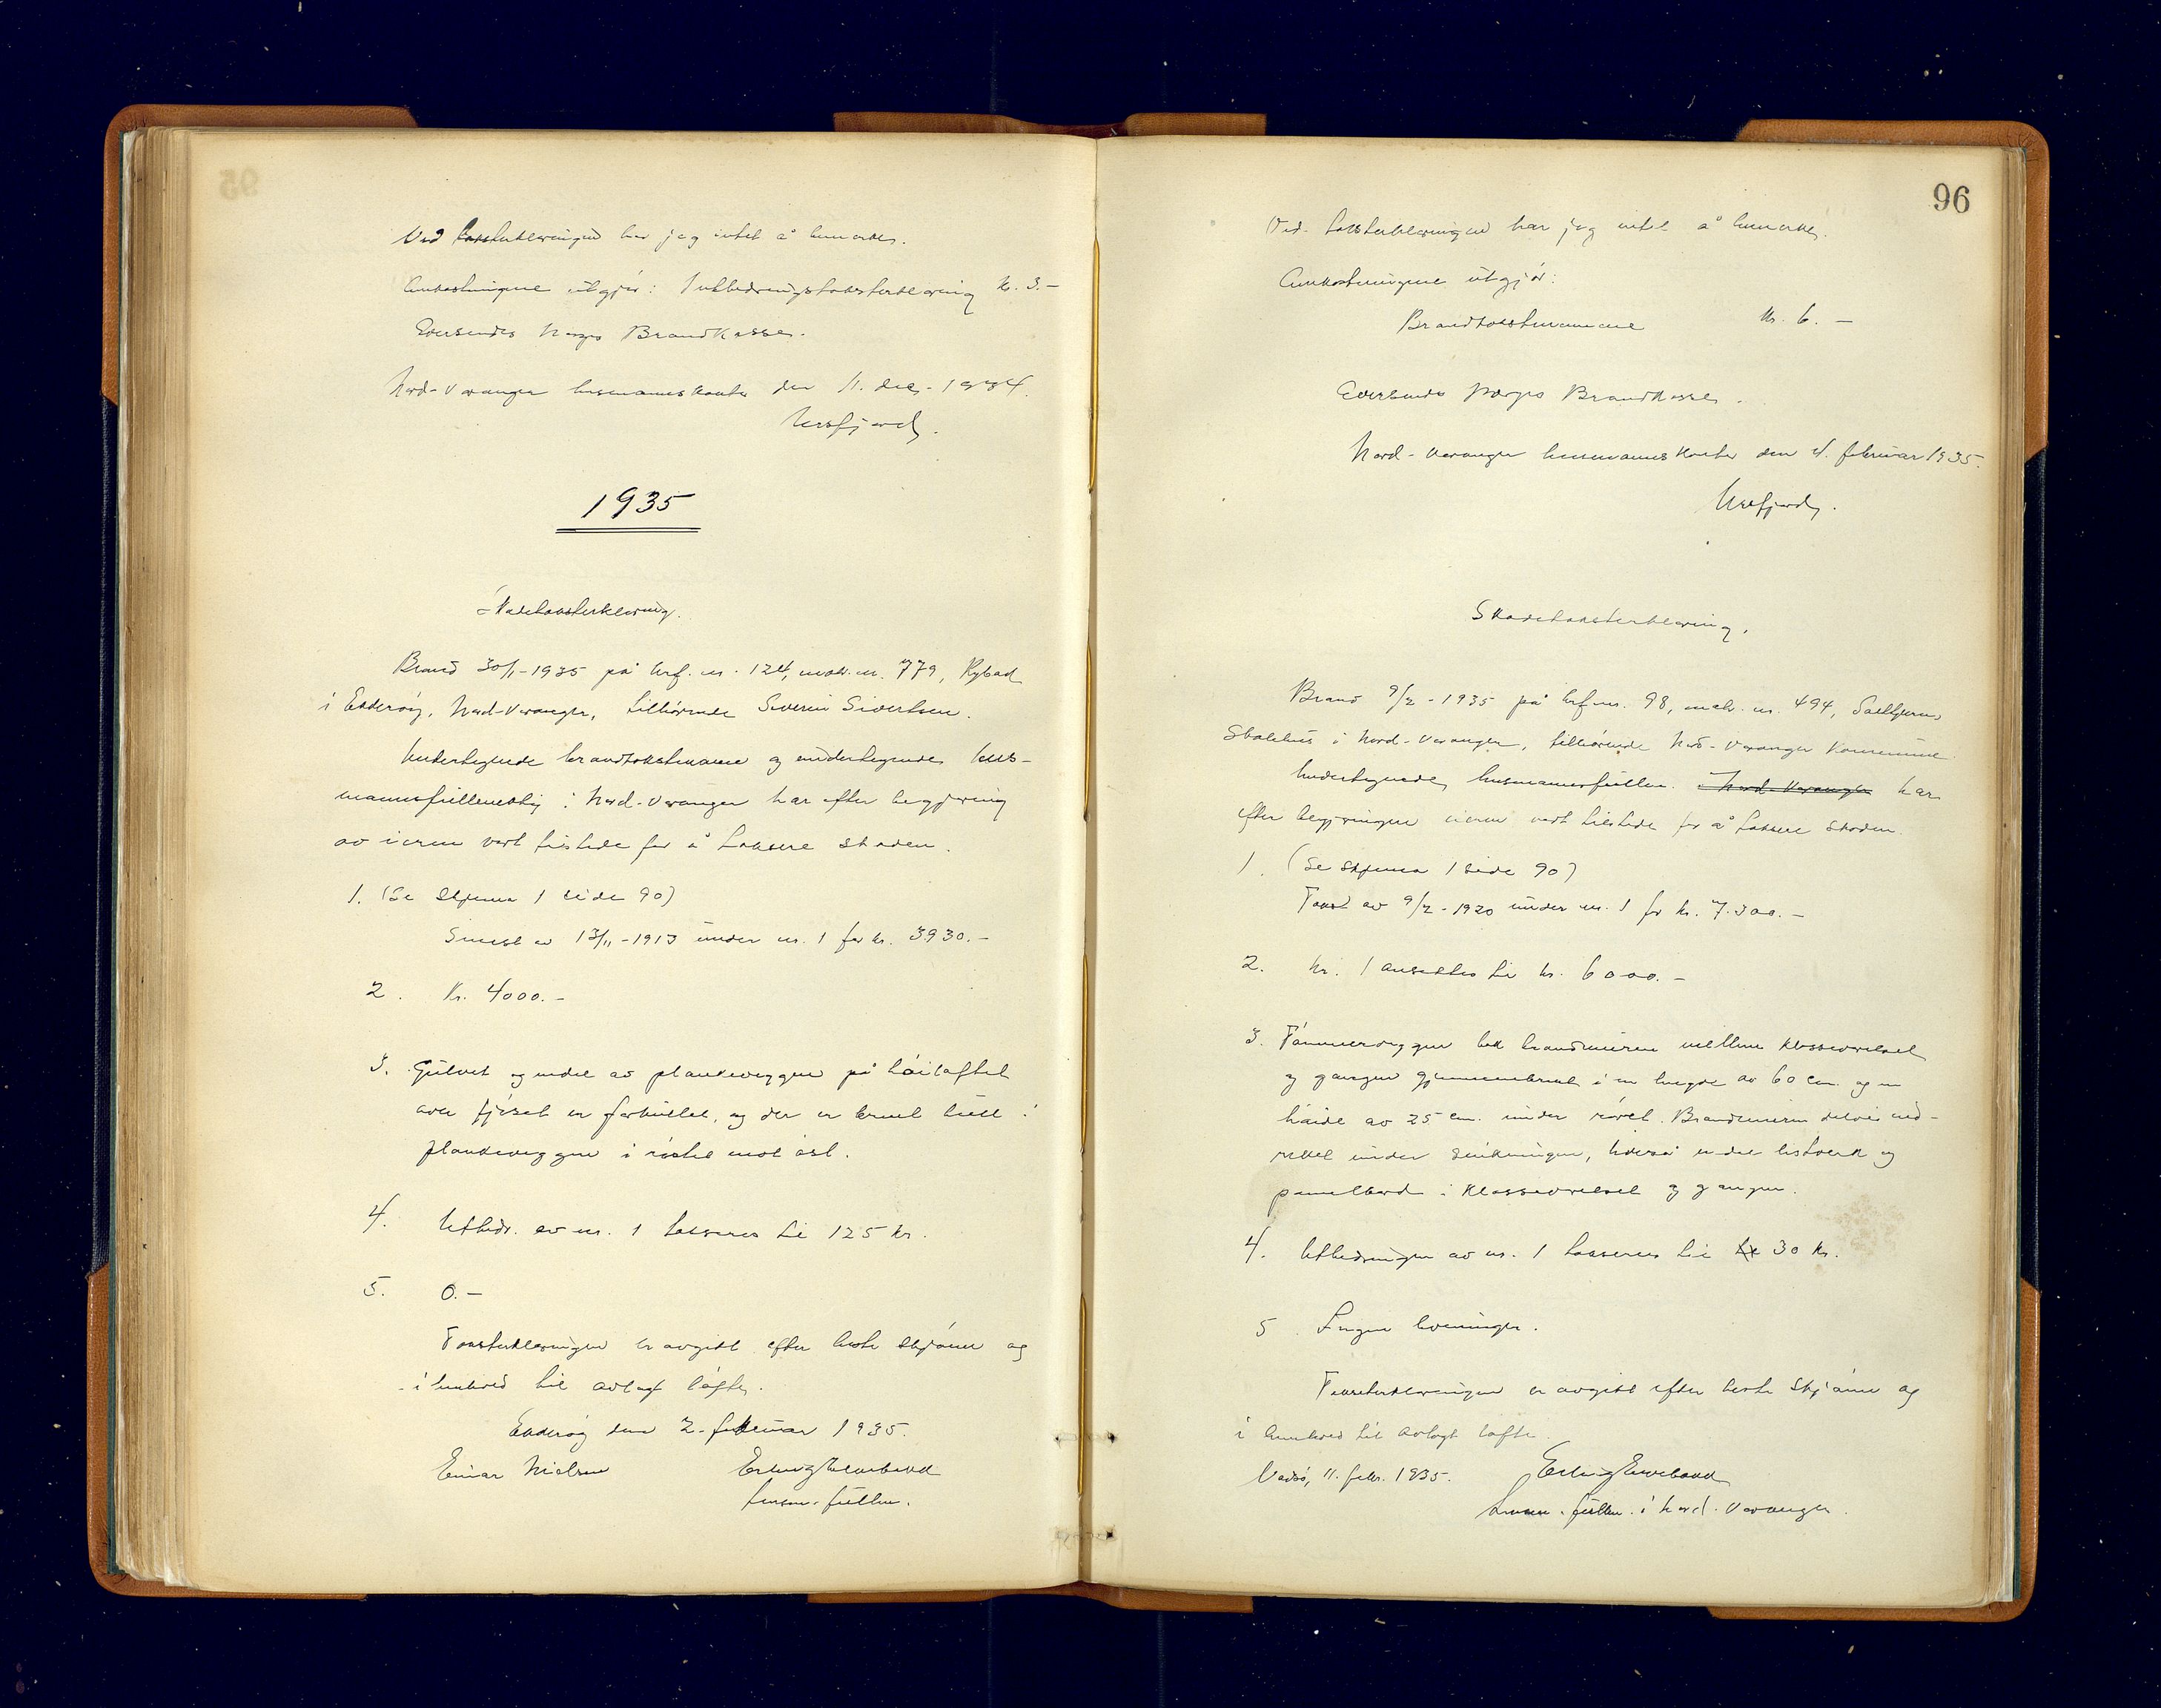 Ved taksterkleringen har jeg intet å bemerke.
Omkostningene utgjør: Utbedringstaksterklering kr. 3.-
Oversendes Norges Brandkasse.
Nord-Varanger lensmannskontor den 11. des. 1934.
1935
Skadetaksterklering.
Brand 30/1-1935 på brf. nr. 124, matr. nr. 779, Nybakk
i Ekkerøy, Nord-Varanger, tilhørende Severin Sivertsen.
Undertegnede brandtakstmann og undertegnede lens-
mannsfullmektig i Nord-Varanger har efter begjæring
av eieren vært tilstede for å taksere skaden.
1. (Se skjema 1 side 90)
Sidst av 13/11-1913 under nr. 1 for kr. 3930.-
2. Kr. 4000.-
3. Gulvet og endel av plankeveggen på høiloftet
over fjøset er forkullet, og der er brent hull i
plankeveggen i røstet mot øst.
4. Utbedr. av nr. 1 takseres til 125 kr.
5. 0.-
Taksterkleringen er avgitt efter beste skjønn og
i henhold til avlagt løfte.
Ekkerøy den 2. februar 1935.
Einar Nielsen Erling
lensm. fullm.
96
Ved taksterkleringen har jeg intet å bemerke.
Omkostningene utgjør:
Brandtakstmennene kr. 6.-
Oversendes Norges Brandkasse.
Nord-Varanger lensmannskontor den 4. februar 1935.
Skadetaksterklering.
Brand 9/2-1935 på brf. nr. 98, matr. nr. 494, Saltjern
skolehus i Nord-Varanger, tilhørende Nord-Varanger kommune.
Undertegnede lensmannsfullm. i Nord-Varanger har
efter begjæringen eieren vært tilstede for å taksere skaden.
1. (Se skjema 1 side 90)
Takst av 9/2-1920 under nr. 1 for kr. 7.300.-
2. Nr. 1 ansettes til kr. 6000.-
3. Tømmerveggen bak brandmuren mellem klasseværelset
og gangen gjennembrent i en lengde av 60 cm. og en
høide av 25 cm. under røret. Brandmuren delvis ned-
revet under slukningen, likeså endel listverk og
panelbord i klasseværelset og gangen.
4. Utbedringen av nr. 1 takseres til kr 30 kr.
5. Ingen levninger.
Taksterkleringen er avgitt efter beste skjønn og
i henhold til avlagt løfte.
Vadsø, 11. febr. 1935. Erling
lensm. fullm. i Nord-Varanger.